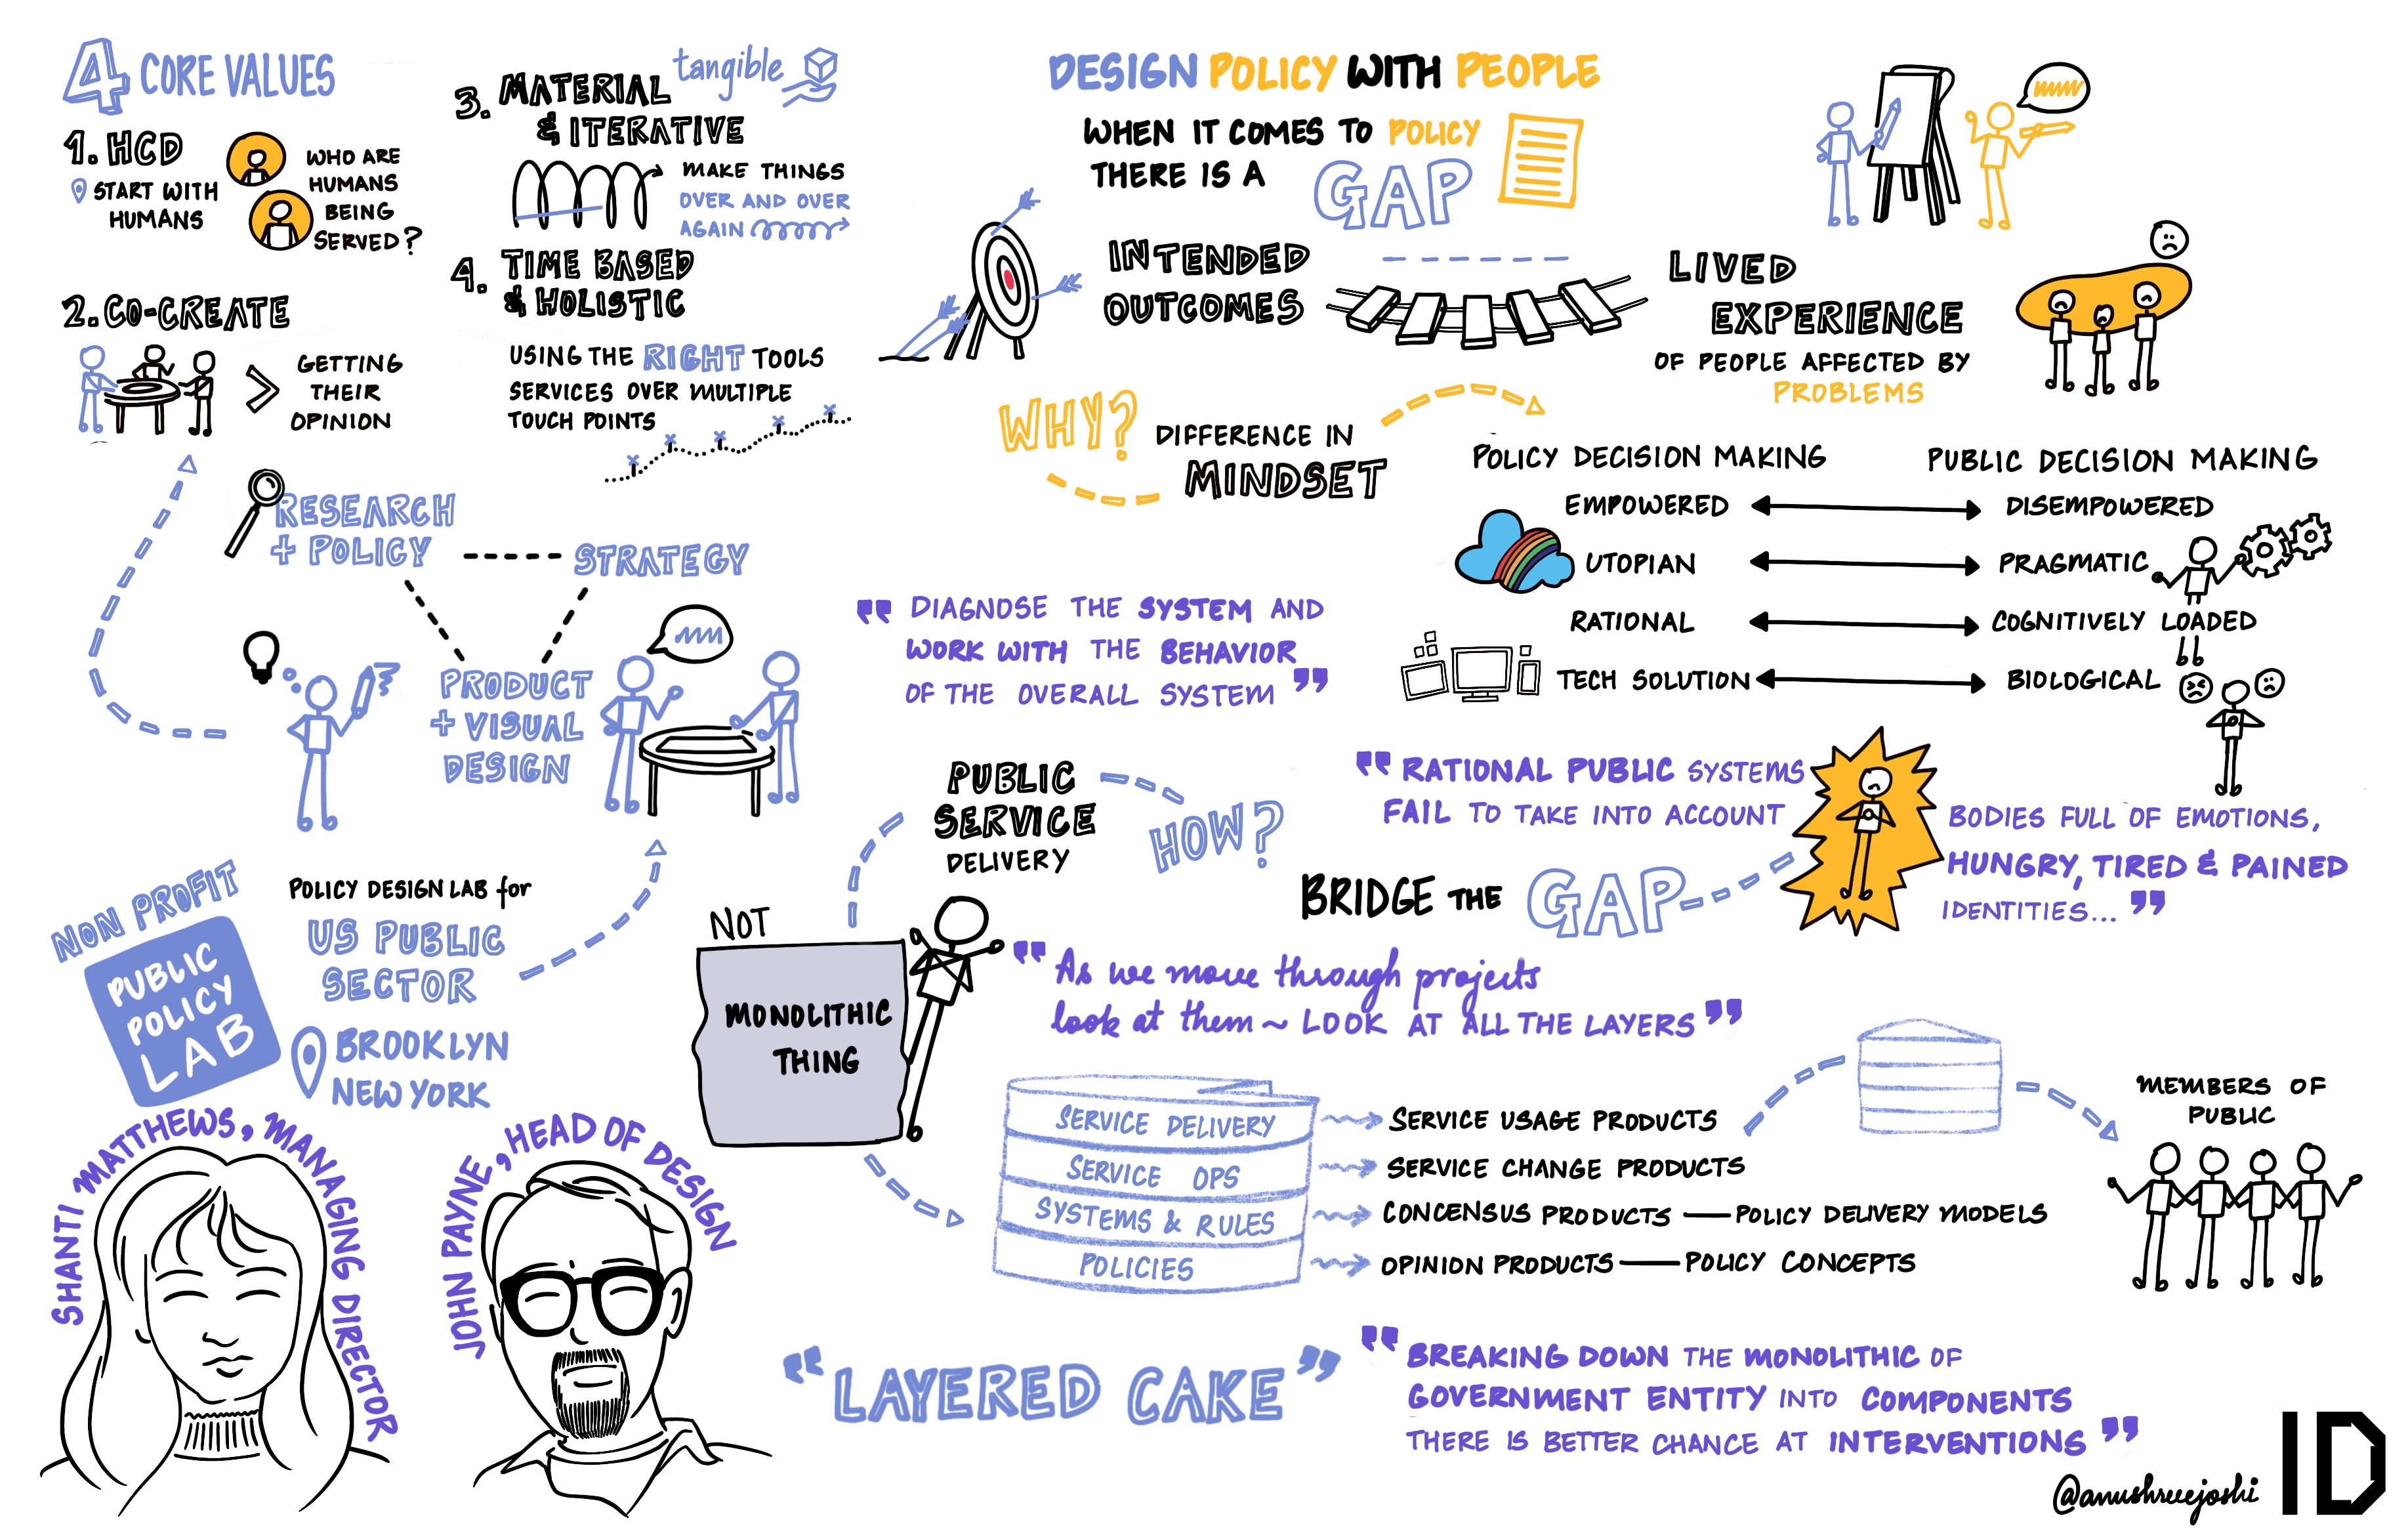 4 CORE VALUES
1. HCD
START WITH
HUMANS
WHO ARE
HUMANS
BEING
SERVED?
2. CO-CREATE
>
GETTING
THEIR
OPINION
3. MATERIAL
& ITERATIVE
tangible
MAKE THINGS
OVER AND OVER
AGAIN
4. TIME BASED
& HOLISTIC
USING THE RIGHT TOOLS
SERVICES OVER MULTIPLE
TOUCH POINTS
RESEARCH
+ POLICY
STRATEGY
PRODUCT
+ VISUAL
DESIGN
NON PROFIT
PUBLIC
POLICY
LAB
POLICY DESIGN LAB for
US PUBLIC
SECTOR
BROOKLYN
NEW YORK
SHANTI MATTHEWS, MANAGING DIRECTOR
JOHN PAYNE, HEAD OF DESIGN
DESIGN POLICY WITH PEOPLE
WHEN IT COMES TO POLICY
THERE IS A GAP
INTENDED
OUTCOMES
LIVED
EXPERIENCE
OF PEOPLE AFFECTED BY
PROBLEMS
WHY?
DIFFERENCE IN
MINDSET
POLICY DECISION MAKING PUBLIC DECISION MAKING
EMPOWERED DISEMPOWERED
UTOPIAN PRAGMATIC
RATIONAL COGNITIVELY LOADED
TECH SOLUTION BIOLOGICAL
" DIAGNOSE THE SYSTEM AND
WORK WITH THE BEHAVIOR
OF THE OVERALL SYSTEM "
" RATIONAL PUBLIC SYSTEMS
FAIL TO TAKE INTO ACCOUNT
BODIES FULL OF EMOTIONS,
HUNGRY, TIRED & PAINED
IDENTITIES... "
BRIDGE THE GAP
HOW?
PUBLIC
SERVICE
DELIVERY
NOT
MONOLITHIC
THING
" As we move through projects
look at them ~ LOOK AT ALL THE LAYERS "
SERVICE DELIVERY
SERVICE USAGE PRODUCTS
SERVICE OPS
SERVICE CHANGE PRODUCTS
SYSTEMS & RULES
CONCENSUS PRODUCTS — POLICY DELIVERY MODELS
POLICIES
OPINION PRODUCTS — POLICY CONCEPTS
MEMBERS OF
PUBLIC
"LAYERED CAKE"
" BREAKING DOWN THE MONOLITHIC OF
GOVERNMENT ENTITY INTO COMPONENTS
THERE IS BETTER CHANCE AT INTERVENTIONS "
@anushreejoshi
ID